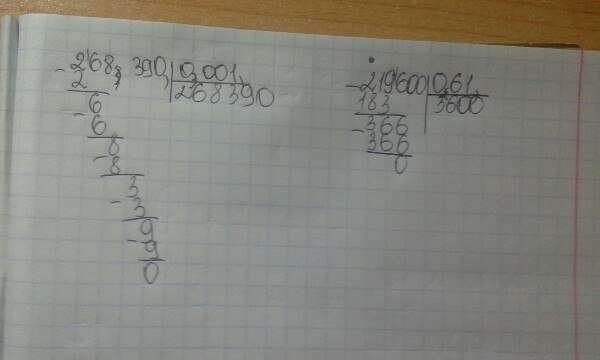 - 268, 390, 0,001,
2 268390
6
- 6
8
- 8
3
- 3
9
- 9
0
- 219600 0,61,
183 3600
- 366
366
0